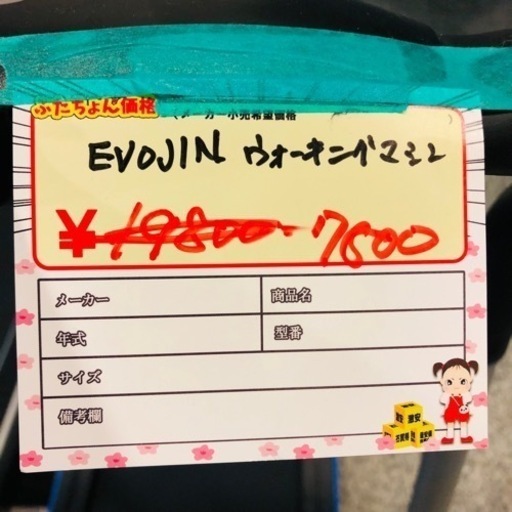 ふたちょん価格
(メーカー小売希望価格 )
EVOJIN ウォーキングマシン
¥ 19800 7800
メーカー 商品名
年式 型番
サイズ
備考欄
激安